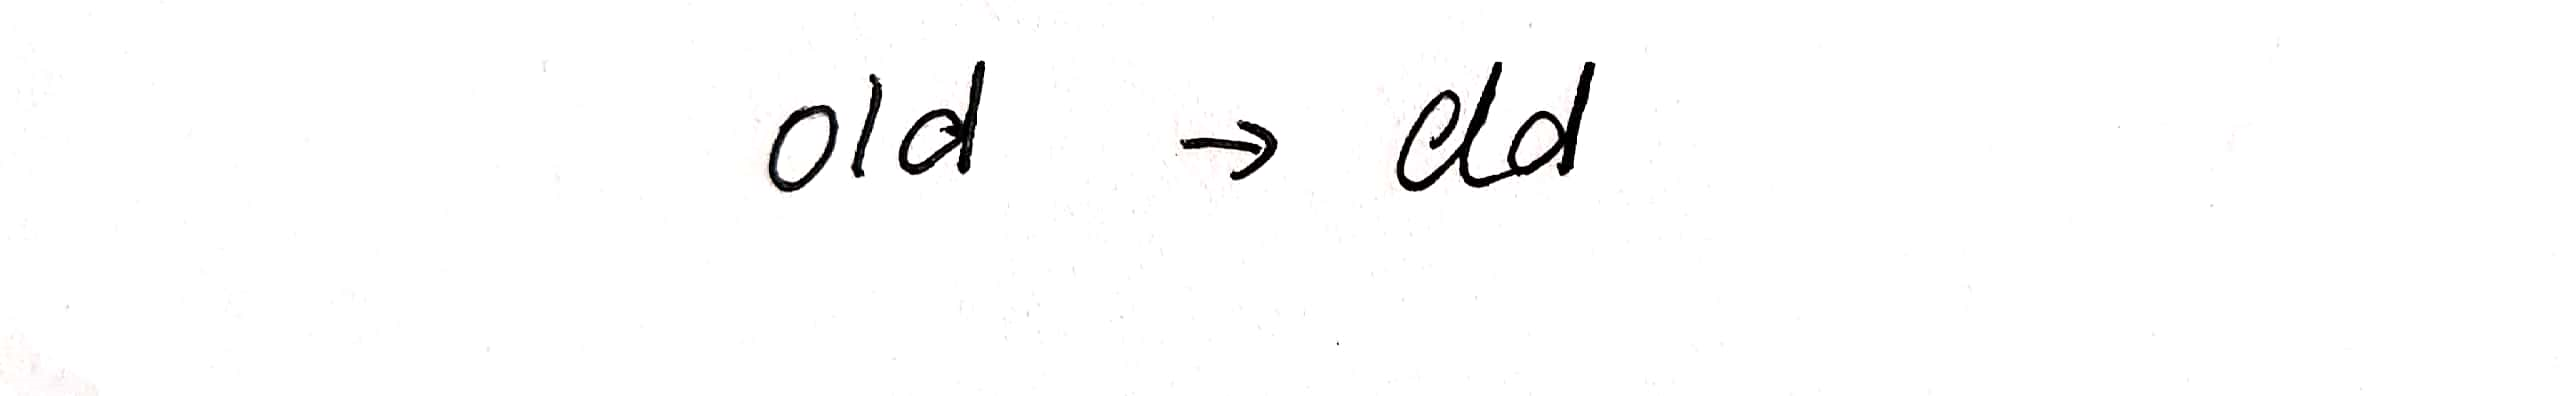 old → old